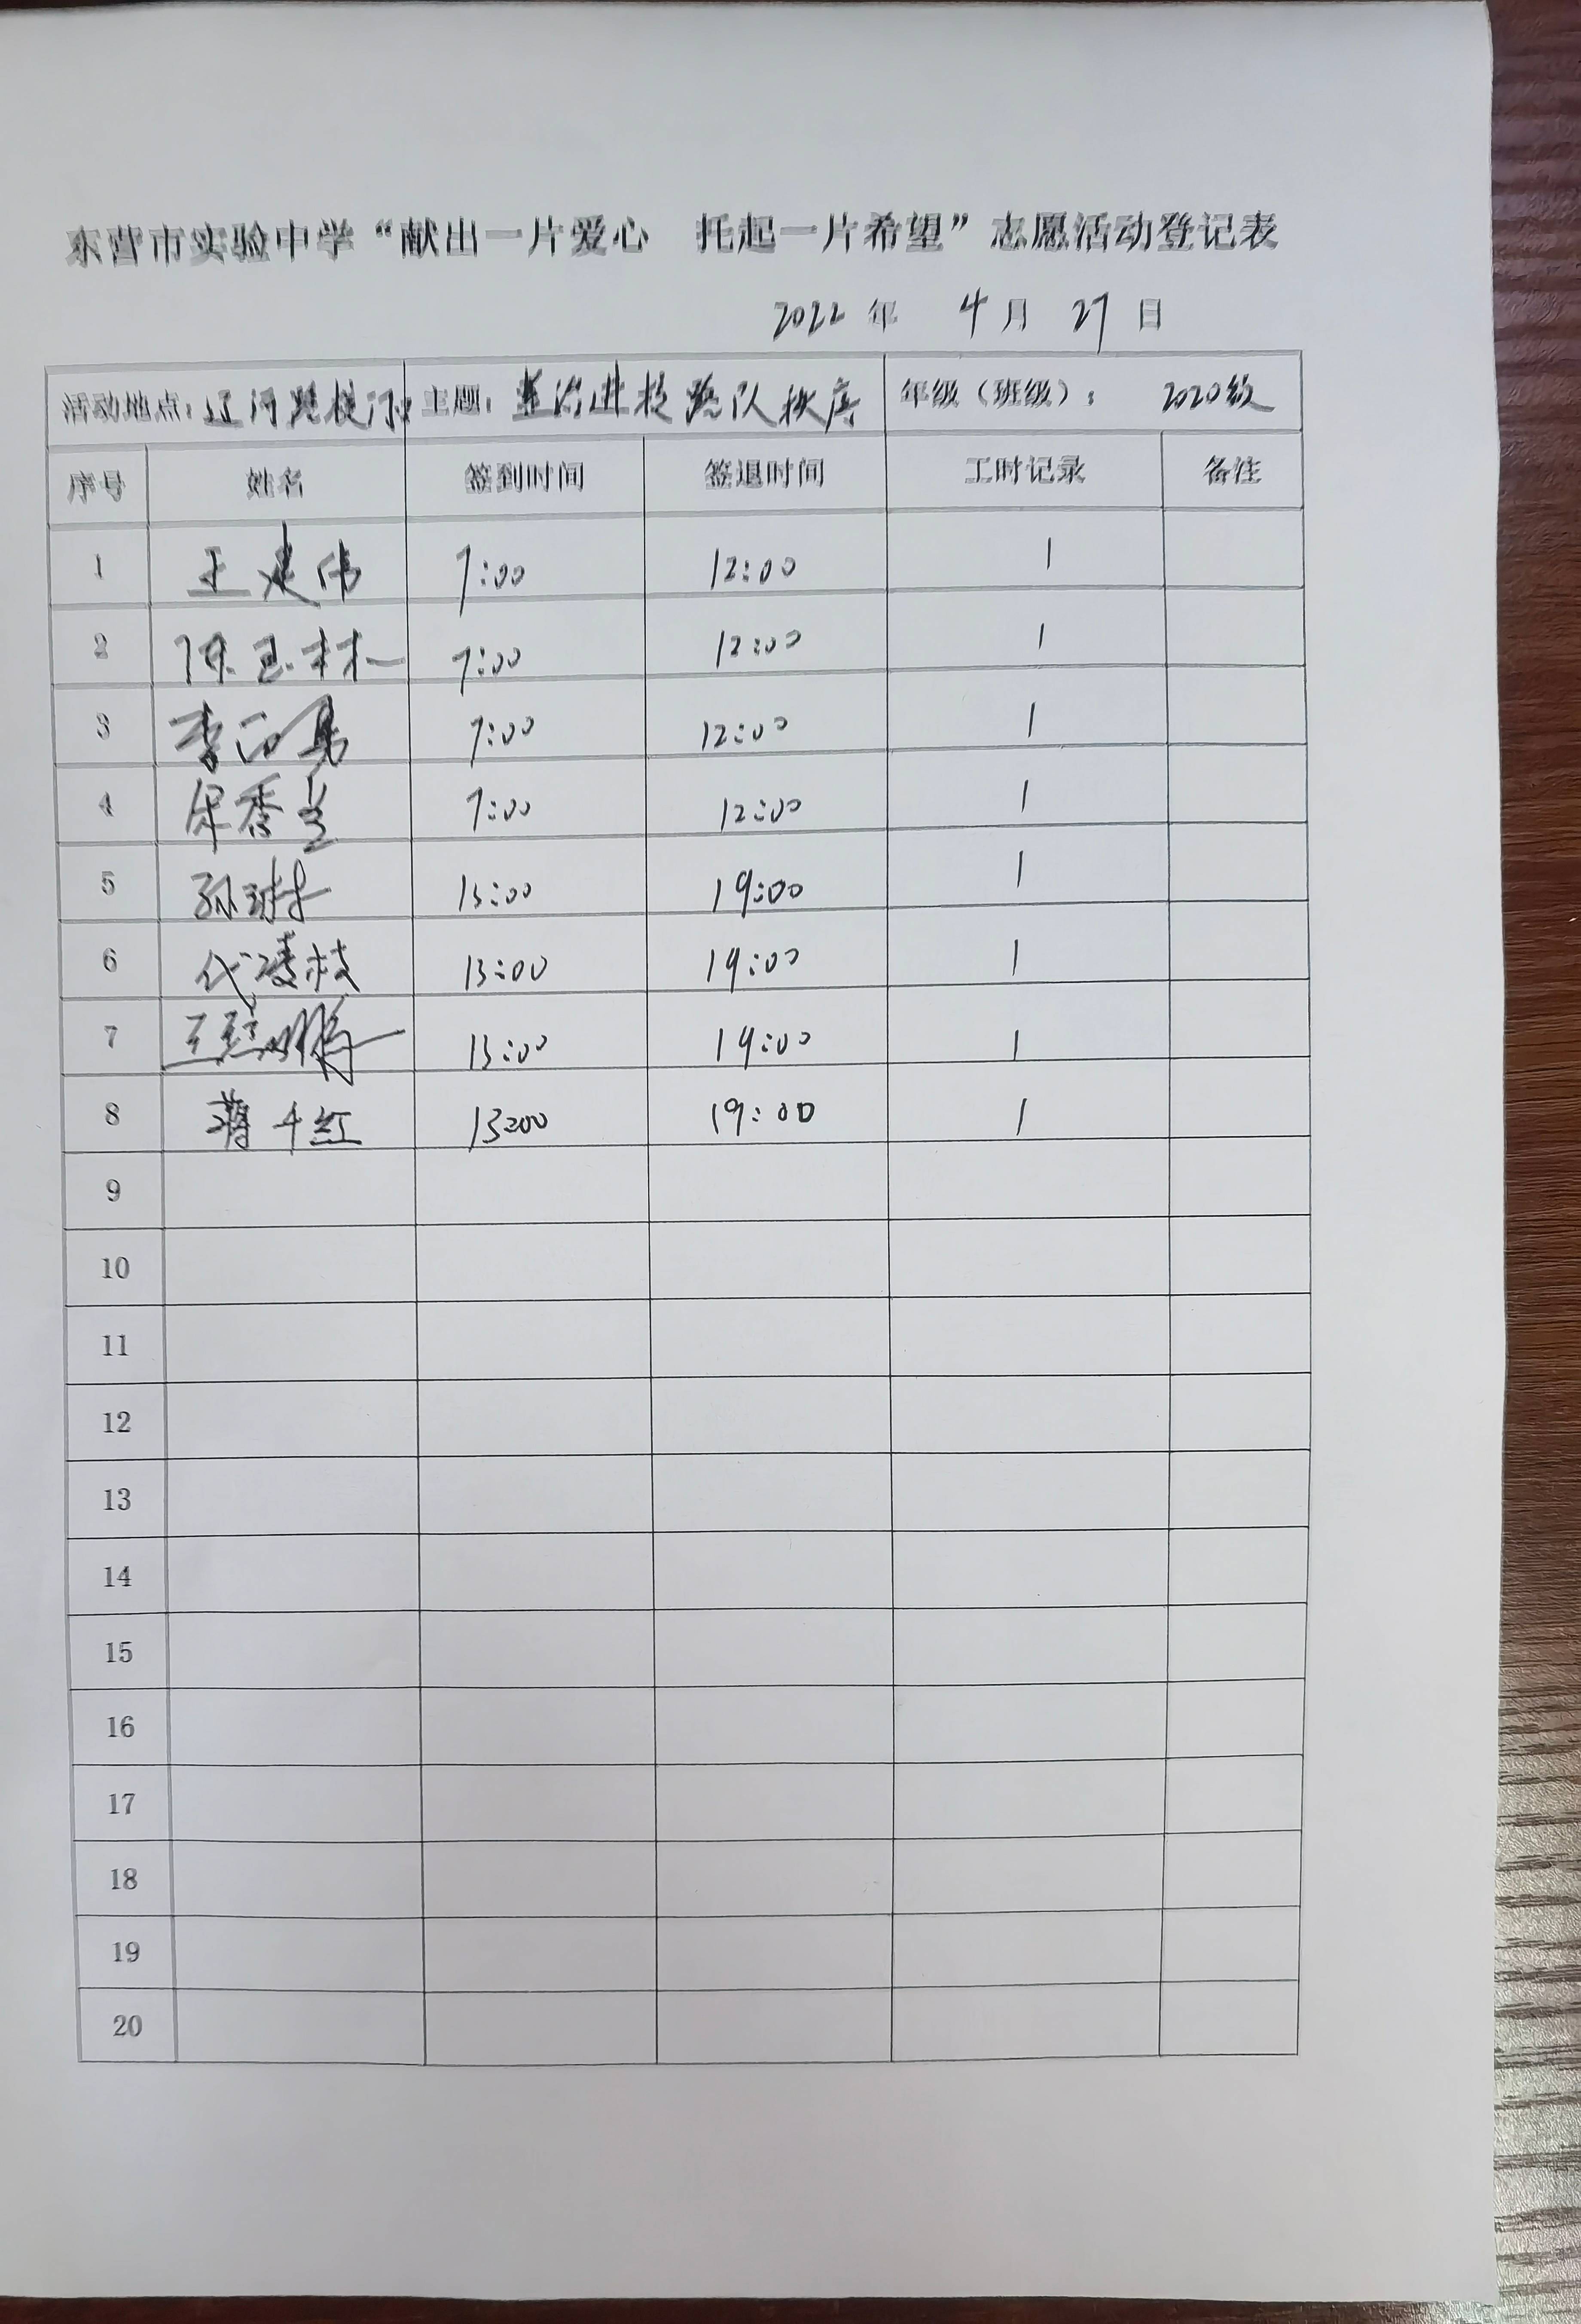 东营市实验中学“献出一片爱心 托起一片希望”志愿活动登记表
2022 年 4 月 27 日
活动地点：辽河路校门口 主题：整治进校 队秩序 年级（班级）： 2020级
序号 姓名 签到时间 签退时间 工时记录 备注
1 王建伟 7:00 12:00 1
2 陈玉林 7:00 12:00 1
3 李 7:00 12:00 1
4 香兰 7:00 12:00 1
5 孙 13:00 19:00 1
6 代凌枝 13:00 19:00 1
7 王 13:00 19:00 1
8 蒋千红 13:00 19:00 1
9
10
11
12
13
14
15
16
17
18
19
20